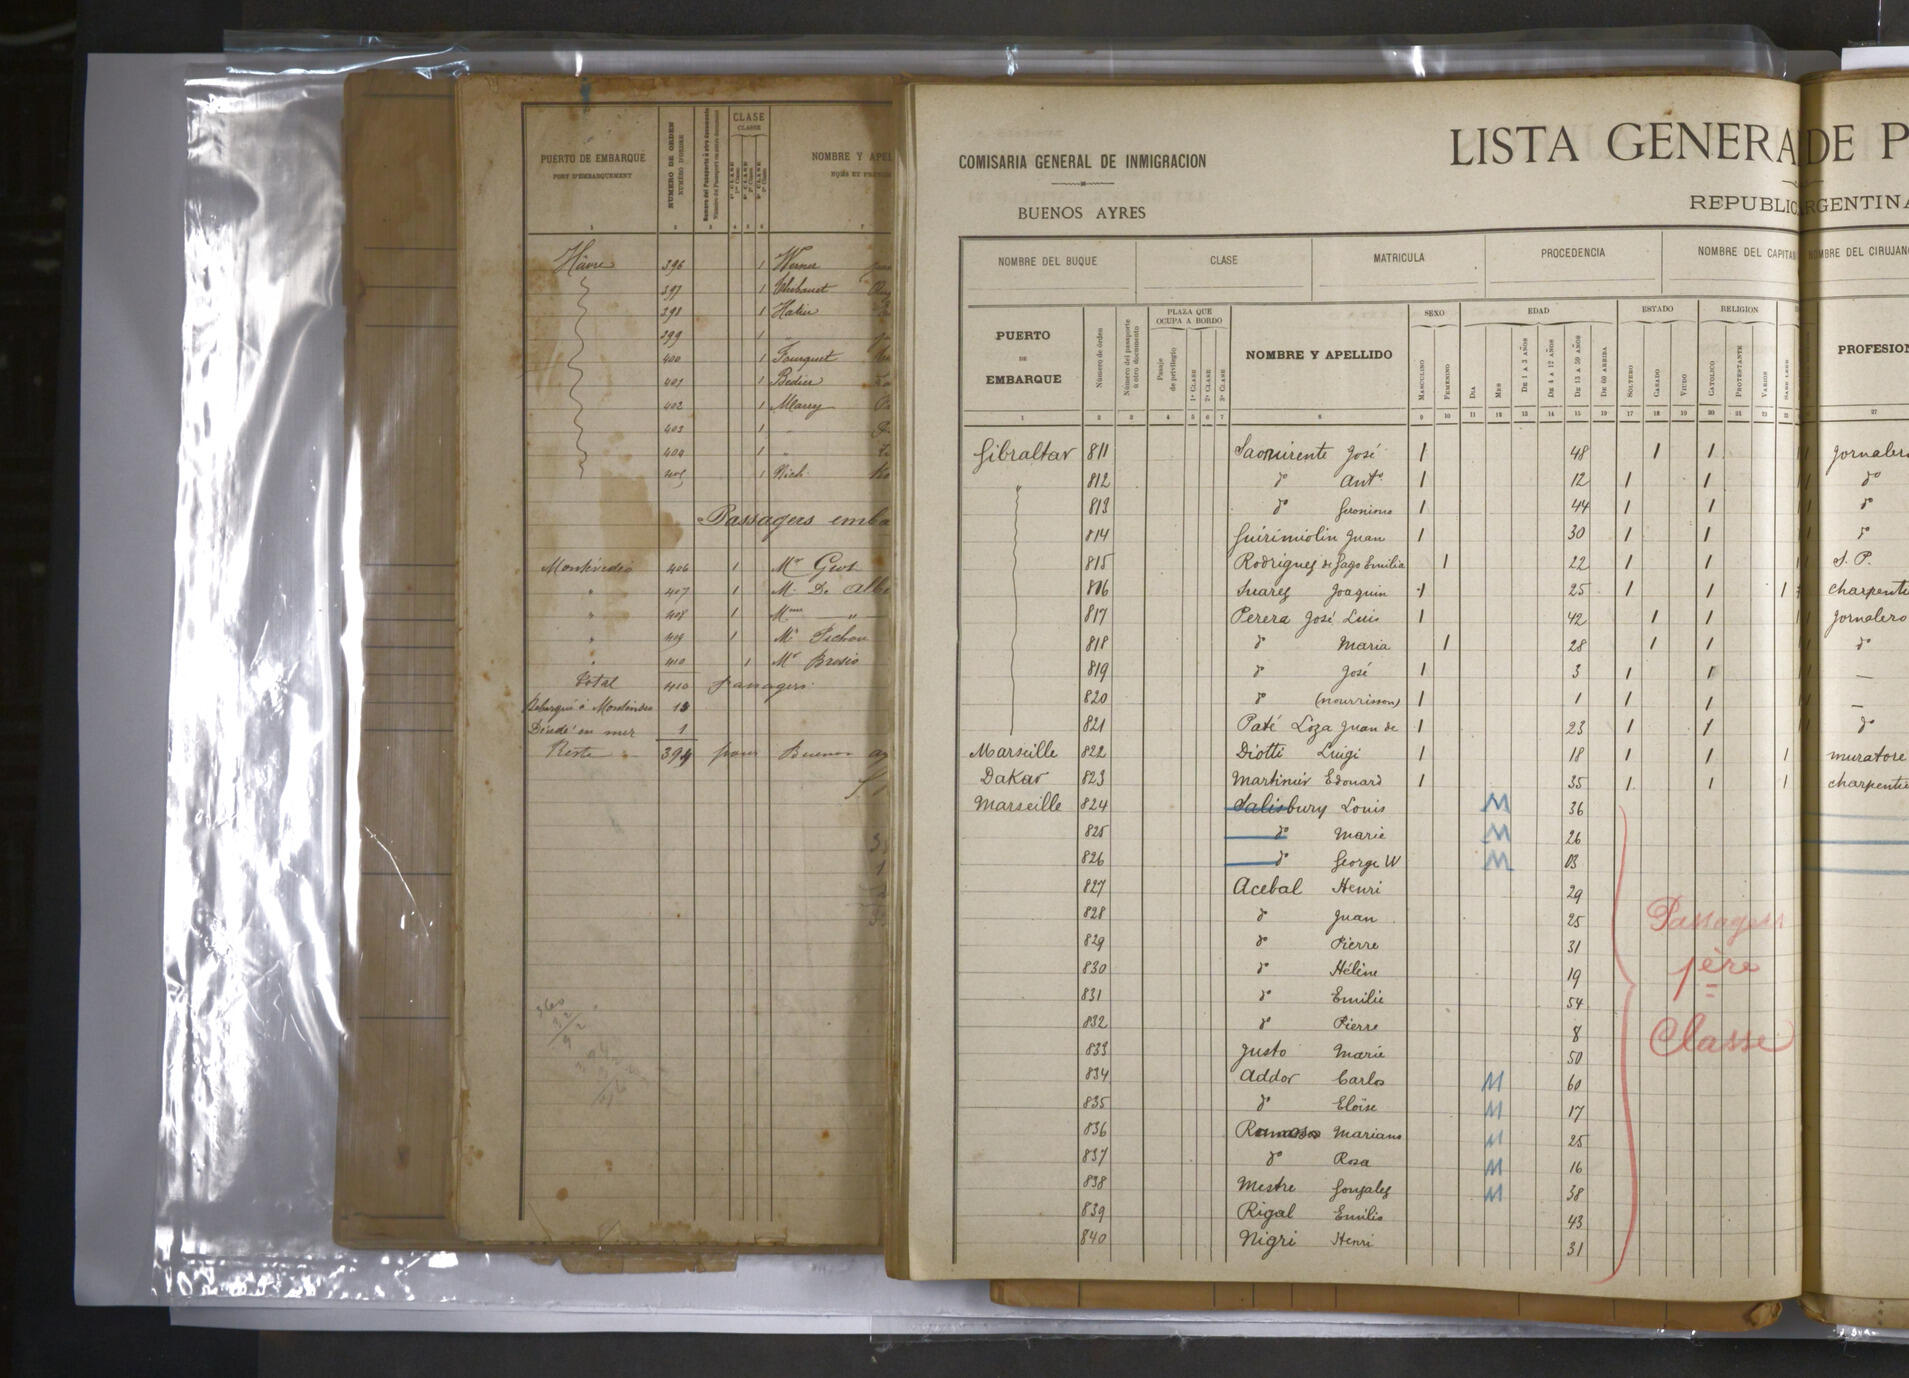 PUERTO DE EMBARQUE
PORT D'EMBARQUEMENT
NUMERO DE ORDEN
NUMÉRO D'ORDRE
CLASE
CLASSE
NOMBRE Y APEL
1 2 3 4 5 6 7
Hâvre 396 1 Werner
397 1
398 1
399 1 "
400 1 Fourquet
401 1 Bedier
402 1 Marry
403 1 "
404 1 "
405 1 Nich
Passagers emba
Montévidéo 406 1 Mr Gros
" 407 1 M. De Albe
" 408 1 Mme "
" 409 1 Mr Pichon
" 410 1 Mr Bresio
Total 410 passagers
Debarqué à Montévideo 15
Décédé en mer 1
Reste 394 pour Buenos ay
COMISARIA GENERAL DE INMIGRACION
BUENOS AYRES
LISTA GENERA DE P
REPUBLIC RGENTINA
NOMBRE DEL BUQUE
CLASE
MATRICULA
PROCEDENCIA
NOMBRE DEL CAPITAN
OMBRE DEL CIRUJANO
PUERTO
DE
EMBARQUE
Número de órden
Número del passaporte
ú otro documento
PLAZA QUE
OCUPA A BORDO
Pasaje
de privilegio
1ª CLASE
2ª CLASE
3ª CLASE
NOMBRE Y APELLIDO
SEXO
MASCULINO
FEMENINO
EDAD
DIA
MES
DE 1 A 3 AÑOS
DE 4 A 12 AÑOS
DE 13 A 59 AÑOS
DE 60 ARRIBA
ESTADO
SOLTERO
CASADO
VIUDO
RELIGION
CATOLICO
PROTESTANTE
VARIOS
SABE LEER
PROFESION
1 2 3 4 5 6 7 8 9 10 11 12 13 14 15 16 17 18 19 20 21 22 23 27
Gibraltar 811 José 1 48 1 1 jornalero
" 812 do Anto 1 12 1 1 do
813 do Geronimo 1 44 1 1 do
814 Guirimiolin Juan 1 30 1 1 do
815 Rodriguez de Gago Emilia 1 22 1 1 S. P.
816 Suarez Joaquin 1 25 1 1 1 charpentie
817 Perera José Luis 1 42 1 1 jornalero
818 do Maria 1 28 1 1 do
819 do José 1 3 1 1 —
820 do (nourrisson) 1 1 1 1 —
821 Paté Loza Juan de 1 23 1 1 do
Marseille 822 Diotti Luigi 1 18 1 1 1 muratore
Dakar 823 Martinier Edouard 1 35 1 1 1 charpentie
Marseille 824 Salisbury Louis M 36
825 do Marie M 26
826 do George W M 03
827 Acebal Henri 29
828 do Juan 25
829 do Pierre 31
830 do Hélène 19
831 do Emilie 54
832 do Pierre 8
833 Justo Marie 50
834 Addor Carlos M 60
835 do Eloïse M 17
836 Mariano M 25
837 do Rosa M 16
838 Mestre Gonzalez M 38
839 Rigal Emilio 43
840 Nigri Henri 31
Passagers
1ère
Classe